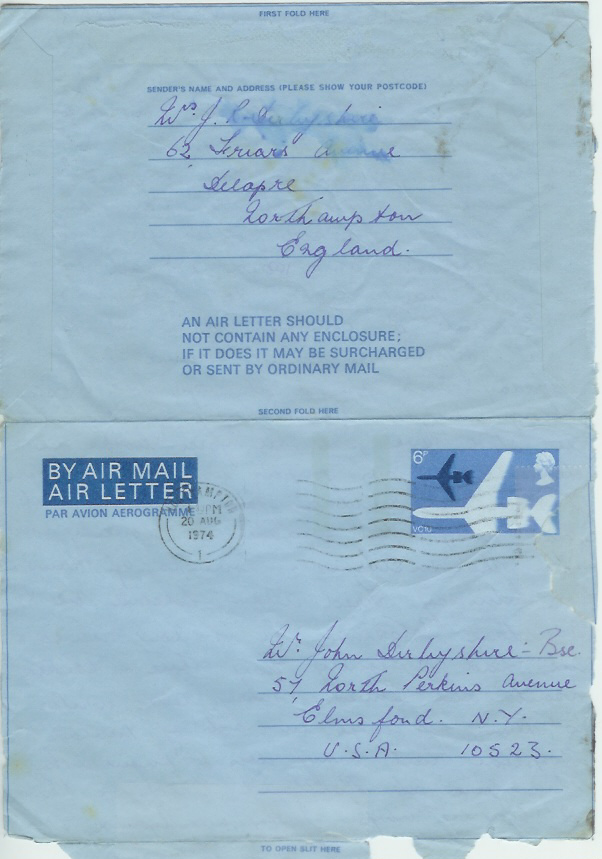 FIRST FOLD HERE
SENDER'S NAME AND ADDRESS (PLEASE SHOW YOUR POSTCODE)
Mrs J. R. Derbyshire
62 Friars Avenue
Delapre
Northampton
England.
AN AIR LETTER SHOULD
NOT CONTAIN ANY ENCLOSURE;
IF IT DOES IT MAY BE SURCHARGED
OR SENT BY ORDINARY MAIL
SECOND FOLD HERE
BY AIR MAIL
AIR LETTER
PAR AVION AEROGRAMME
6P
VC10
PM
20 AUG
1974
1
Mr. John Derbyshire - Bsc.
57 North Perkins Avenue
Elmsford. N.Y.
U.S.A. 10523.
TO OPEN SLIT HERE